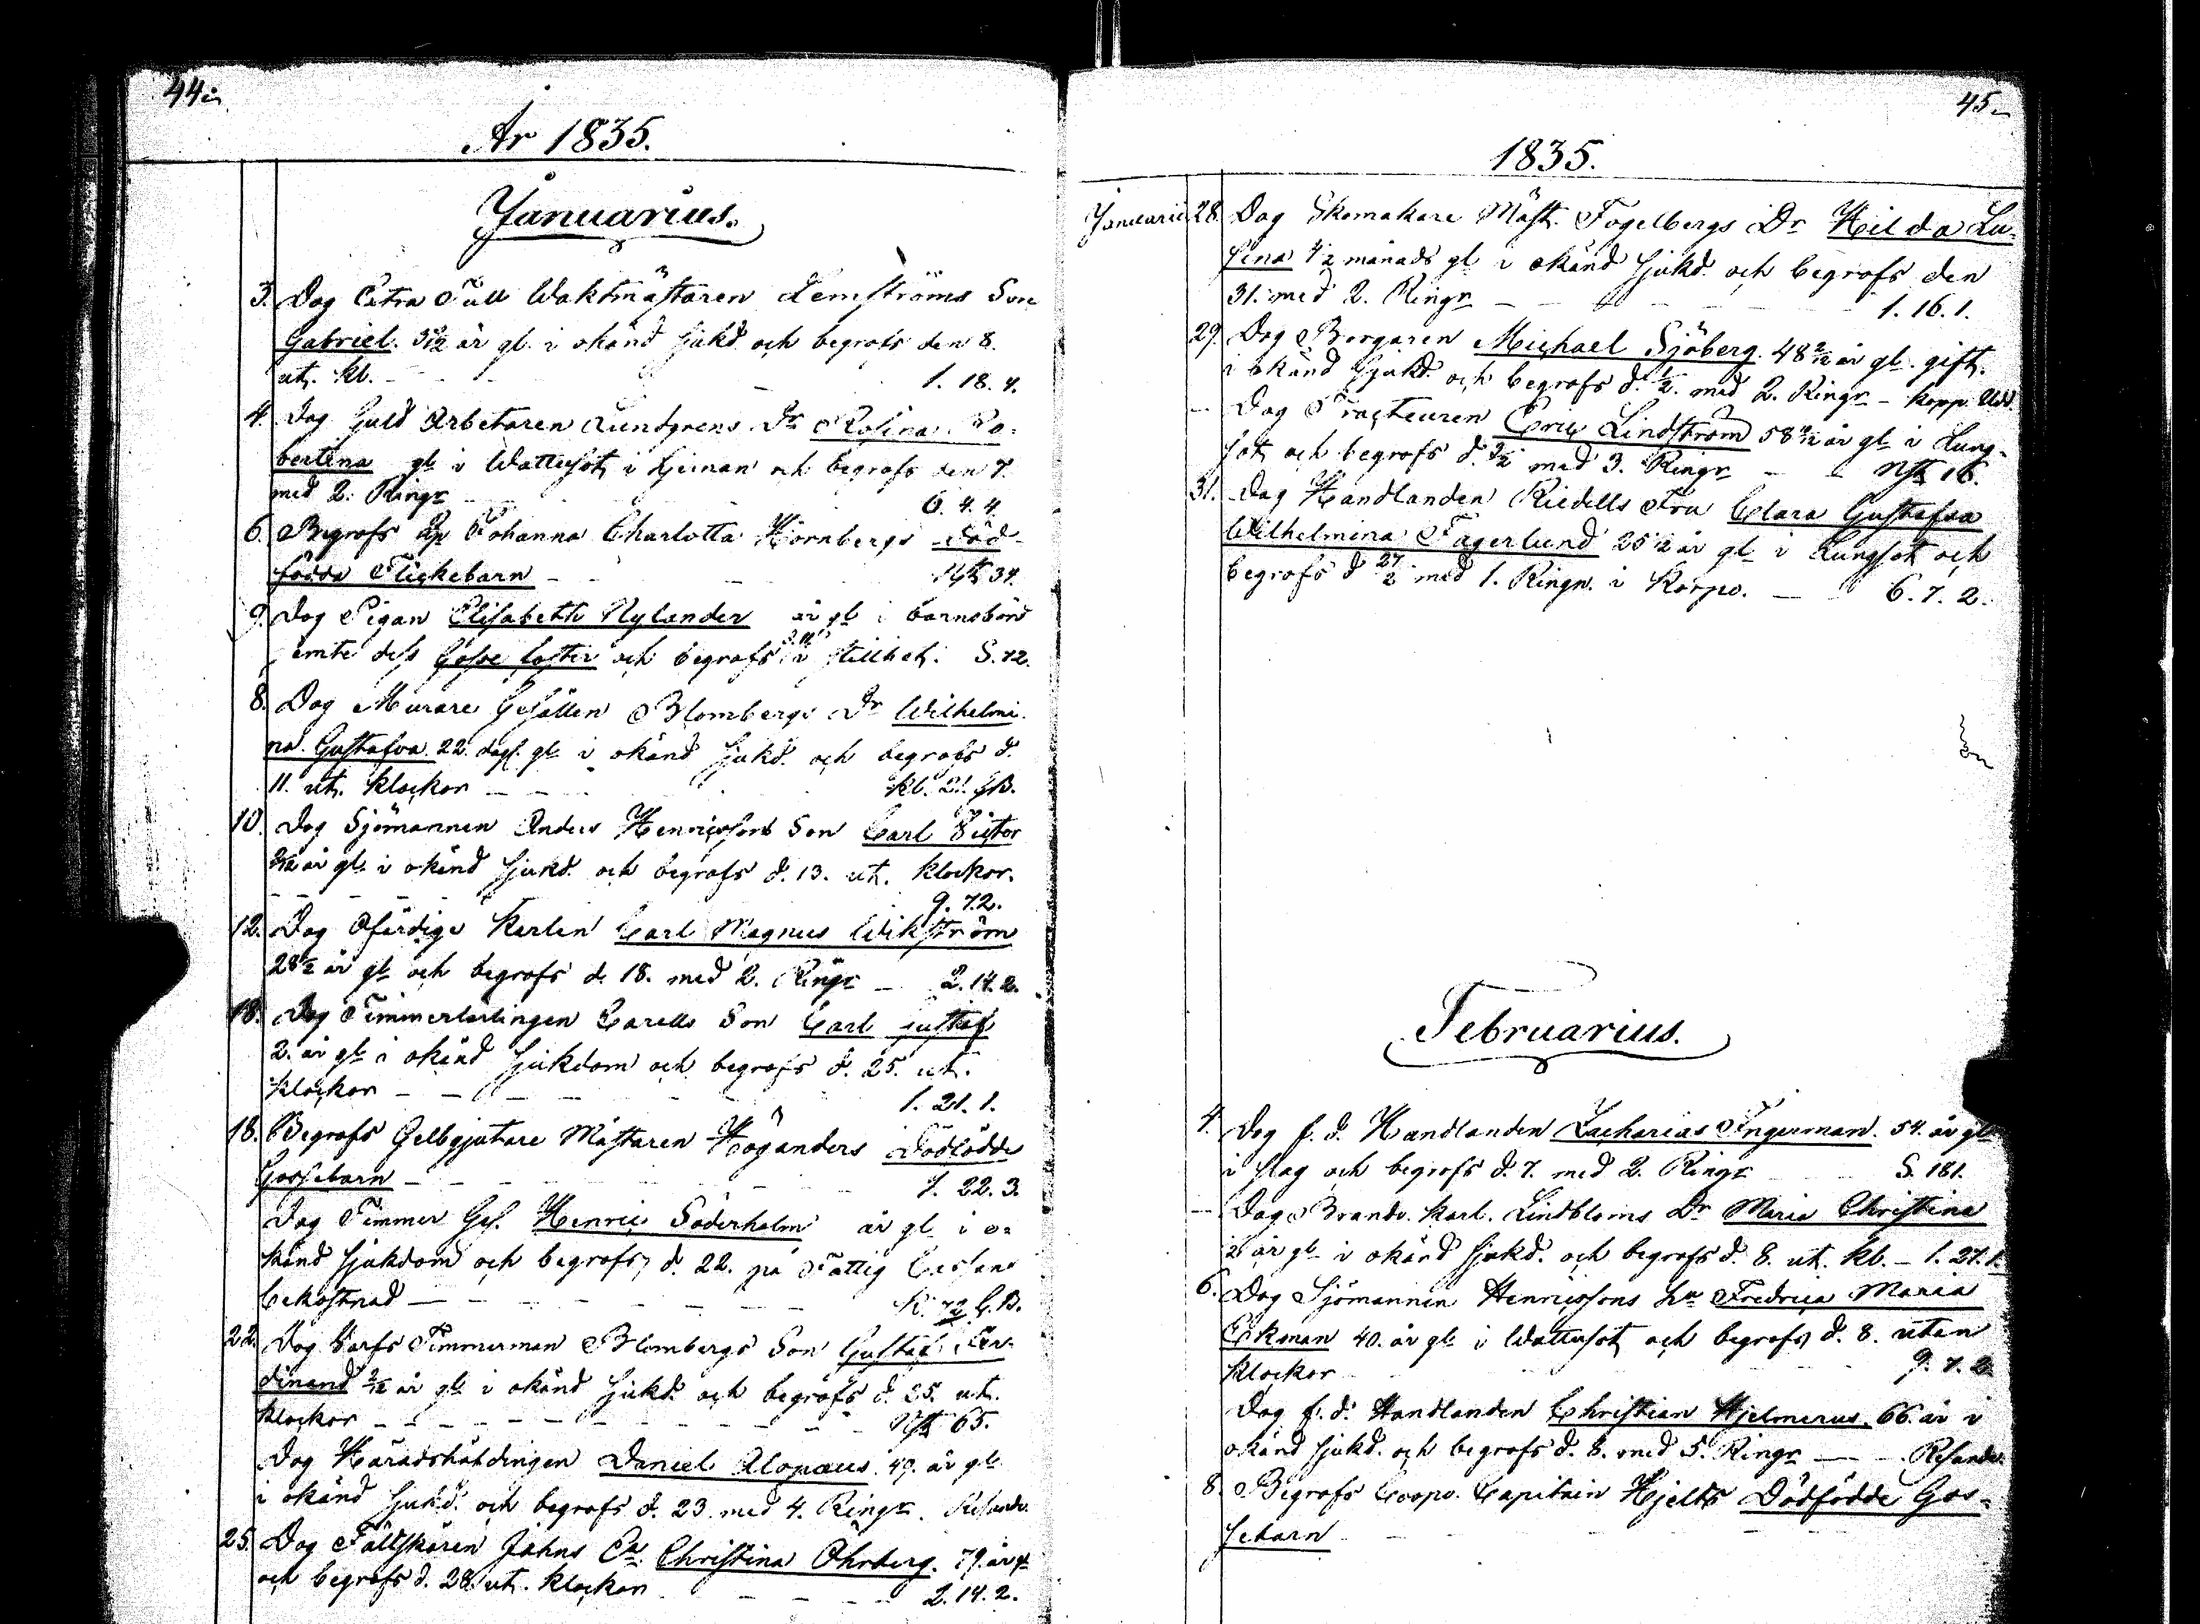 44
År 1835.
Januarius.
3. Dog Extra Tull Waktmästaren Lemströms Son
Gabriel. 3 5/12 år gl. i okänd sjukd. och begrofs den 8.
ut. kl. 1. 18. 4.
4. Dog Guld Arbetaren Lundgrens Dr Rosina Ro-
bertina gl. i Wattusot i hjernan och begrofs den 7.
med 2. Ringr 6. 4. 4.
6. Begrofs Johanna Charlotta Hörnbergs död-
födda Flickebarn 34.
9. Dog Pigan Elisabeth Nylander år gl. i barnsbörd
jemte dess Gosse foster och begrofs i stillhet. S. 72.
8. Dog Murare Gesällen Blombergs Dr Wilhelmi-
na Gustafva 22. dag. gl. i okänd sjukd. och begrofs d.
11. ut. klockor kl. 21. G.B.
10. Dog Sjömannen Anders Henricsons Son Carl Victor
år gl. i okänd sjukd. och begrofs d. 13. ut. klockor.
9. 72.
12. Dog Ofärdige Karlen Carl Magnus Wikström
28 år gl. och begrofs d. 18. med 2. Ringr 2. 14. 2.
18. Dog Timmerlärlingen Carells Son Carl Gustaf
2. år gl. i okänd sjukdom och begrofs d. 25. ut.
klockor 1. 21. 1.
18. Begrofs Gelbgjutare Mästaren Höganders Dödfödde
Gossebarn 7. 22. 3.
Dog Timmer Ges. Henric Söderholm år gl. i o-
känd sjukdom och begrofs d. 22. på Fattig Cassans
bekostnad K. 72 G.B.
22. Dog Varfs Timmerman Blombergs Son Gustaf Fer-
dinand år gl. i okänd sjukd. och begrofs d. 25. ut.
klockor 65.
Dog Häradshöfdingen Daniel Alopæus. 49. år gl.
i okänd sjukd. och begrofs d. 23. med 4. Ringr. Resande.
25. Dog Fältskären Jahns Christina Öhrberg. 79. år gl
och begrofs d. 28. ut. klockor 2. 14. 2.
45
1835.
Januarii 28. Dog Skomakare Mäst. Fogelbergs Dr Hilda Lu-
sina 4 1/2 månads gl. i okänd sjukd. och begrofs den
31. med 2. Ringr 1. 16. 1.
29. Dog Borgaren Michael Sjöberg. 48 2/12 år gl. gift.
i okänd sjukd. och begrofs d. 1/2. med 2. Ringr - Kopp.
Dog Tracteuren Eric Lindström 58 år gl. i Lung-
sot och begrofs d. med 3. Ringr 16.
31. Dog Handlanden Riedells Fru Clara Gustafva
Wilhelmina Fagerlund 25 år gl. i Lungsot och
begrofs d. 27/2 med 1. Ringn. i Korpo. 6. 7. 2.
Februarius.
4. Dog f. d. Handlanden Zacharias Ingerman. 54. år gl
i slag och begrofs d. 7. med 2. Ringr S. 181.
Dog Brandv. Karl. Lindbloms Dr Maria Christina
år gl. i okänd sjukd. och begrofs d. 8. ut. kl. 1. 27. 1.
6. Dog Sjömannen Henricsons hu Fredrica Maria
Ekman 40. år gl. i Wattusot och begrofs d. 8. utan
klockor 9. 7. 2.
Dog f. d. Handlanden Christian Hjelmerus. 66. år i
okänd sjukd. och begrofs d. 8. med 5. Ringr Resande.
8. Begrofs Coopv. Capitain Hjelts Dödfödde Gos-
sebarn